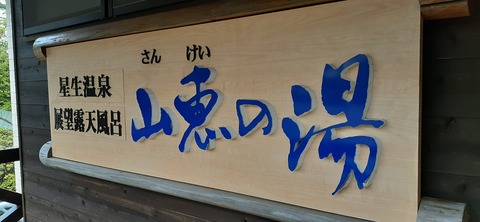 星生温泉
展望露天風呂
さんけい
山恵の湯